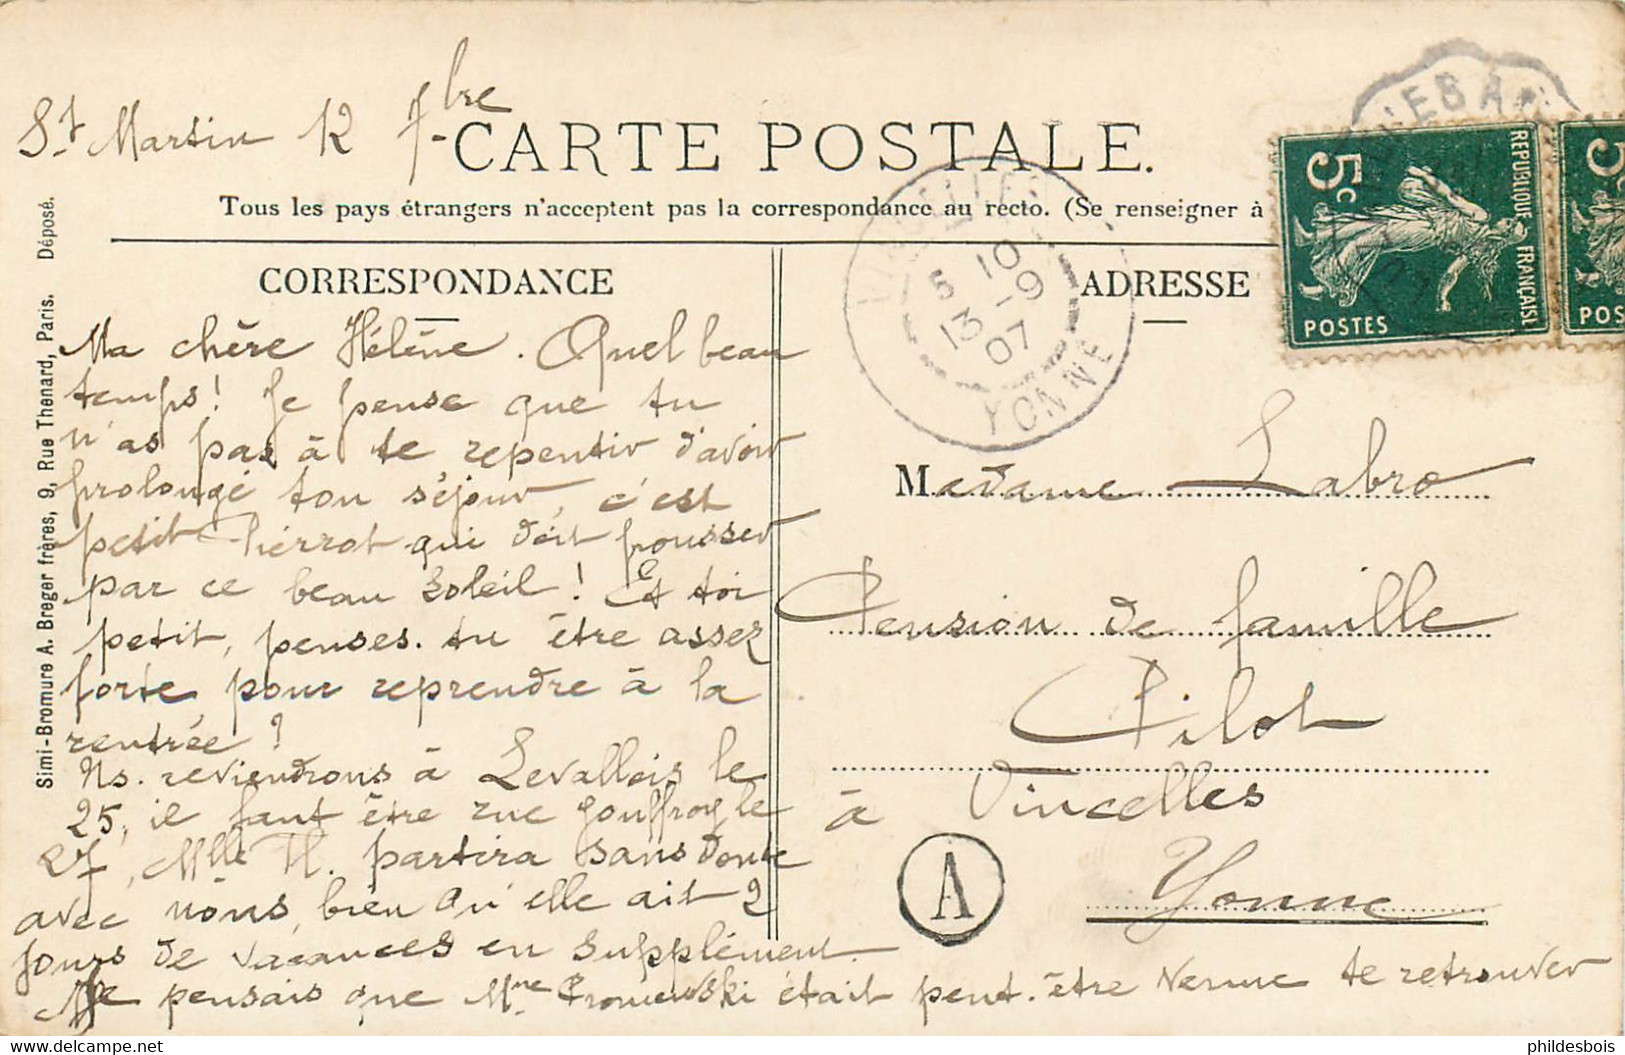 St Martin 12 7bre
CARTE POSTALE.
Tous les pays étrangers n'acceptent pas la correspondance au recto. (Se renseigner à
CORRESPONDANCE
Ma chère Hélène. Quel beau
temps! Je pense que tu
n'as pas à te repentir d'avoir
prolongé ton séjour, c'est
petit Pierrot qui doit pousser
par ce beau soleil! Et toi
petit, penses-tu être assez
forte pour reprendre à la
rentrée?
Ns. reviendrons à Levallois le
25, il faut être rue Jouffroy le
27, Mlle H. partira sans doute
avec nous, bien qu'elle ait 2
jours de vacances en supplément.
Je pensais que Mme était peut-être venue te retrouver
ADRESSE
Madame Labro
Pension de famille
Pilot
à Vincelles
Yonne
A
VINCELLES
5 10
13-9
07
YONNE
5c
REPUBLIQUE FRANÇAISE
POSTES
5c
POS
Simi-Bromure A. Breger frères, 9, Rue Thenard, Paris. Déposé.
https://www.delcampe.net
phildesbois